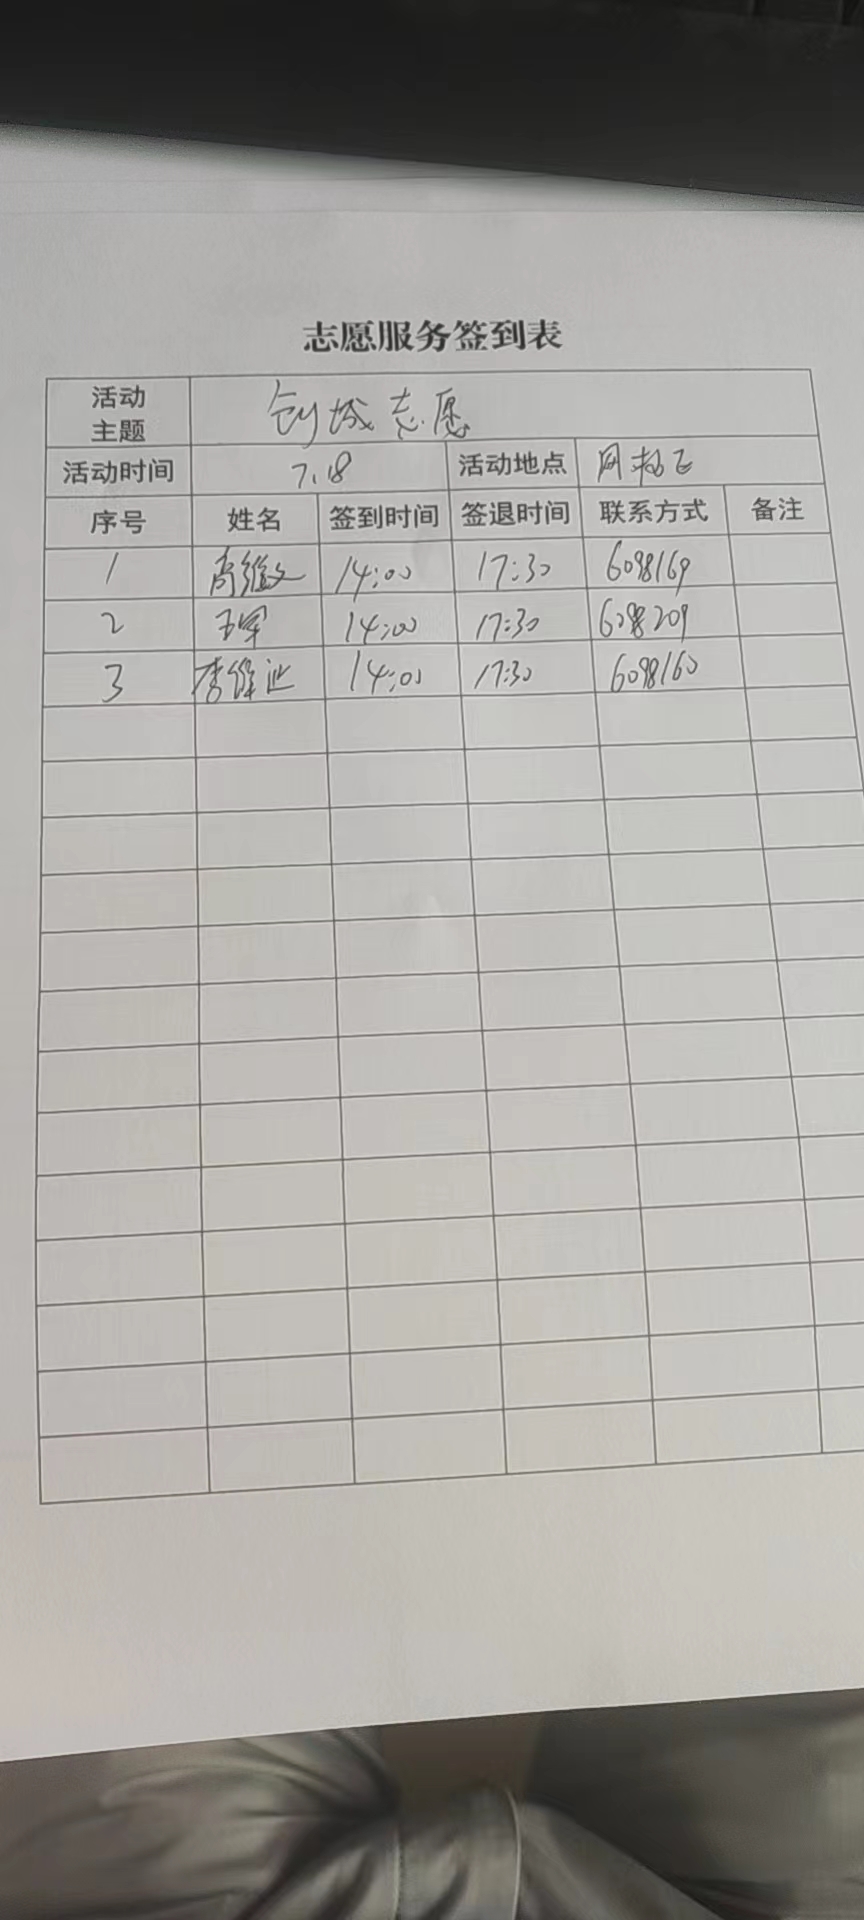 志愿服务签到表
活动主题 创城志愿
活动时间 7.18 活动地点
序号 姓名 签到时间 签退时间 联系方式 备注
1 高继文 14:00 17:30 6098169
2 王军 14:00 17:30 6098209
3 李 14:00 17:30 6098160